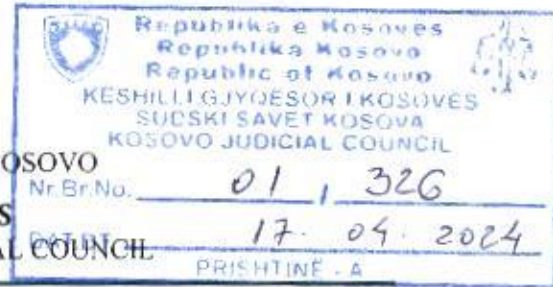 Republika e Kosovës
Republika Kosova
Republic of Kosovo
KËSHILLI GJYQËSOR I KOSOVËS
SUDSKI SAVET KOSOVA
KOSOVO JUDICIAL COUNCIL
OSOVO
Nr.Br.No. 01, 326
S
17. 04. 2024
AL COUNCIL
PRISHTINË - A